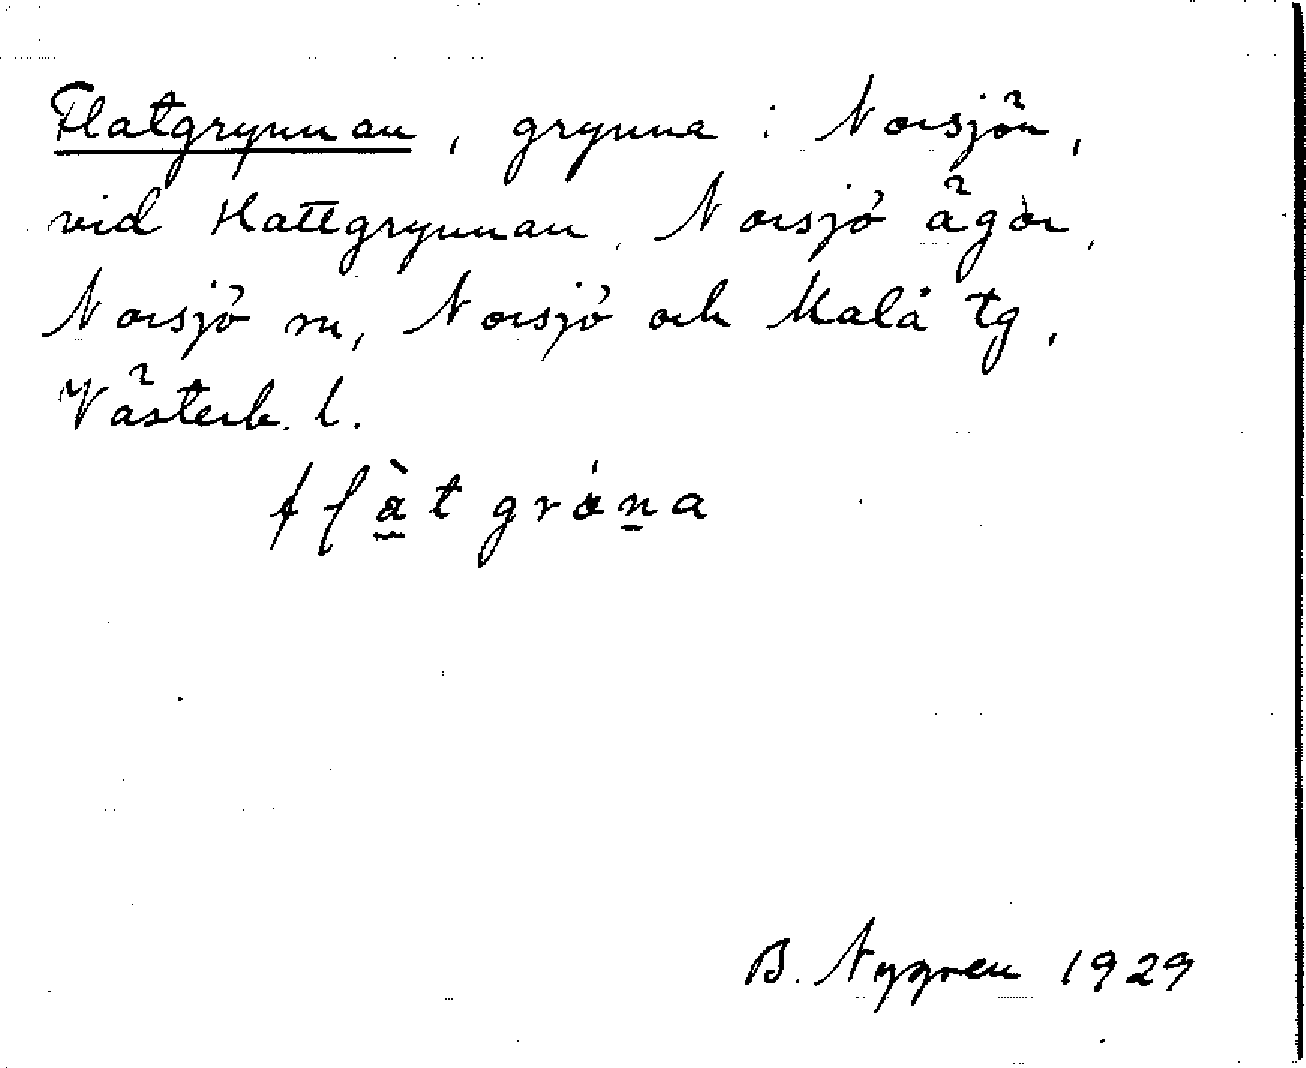 Flatgrynnan, grynna i Norsjön,
vid Hattgrynnan, Norsjö ägor,
Norsjö sn, Norsjö och Malå tg,
Västerb. l.
flàt gróna
B. Nygren 1929